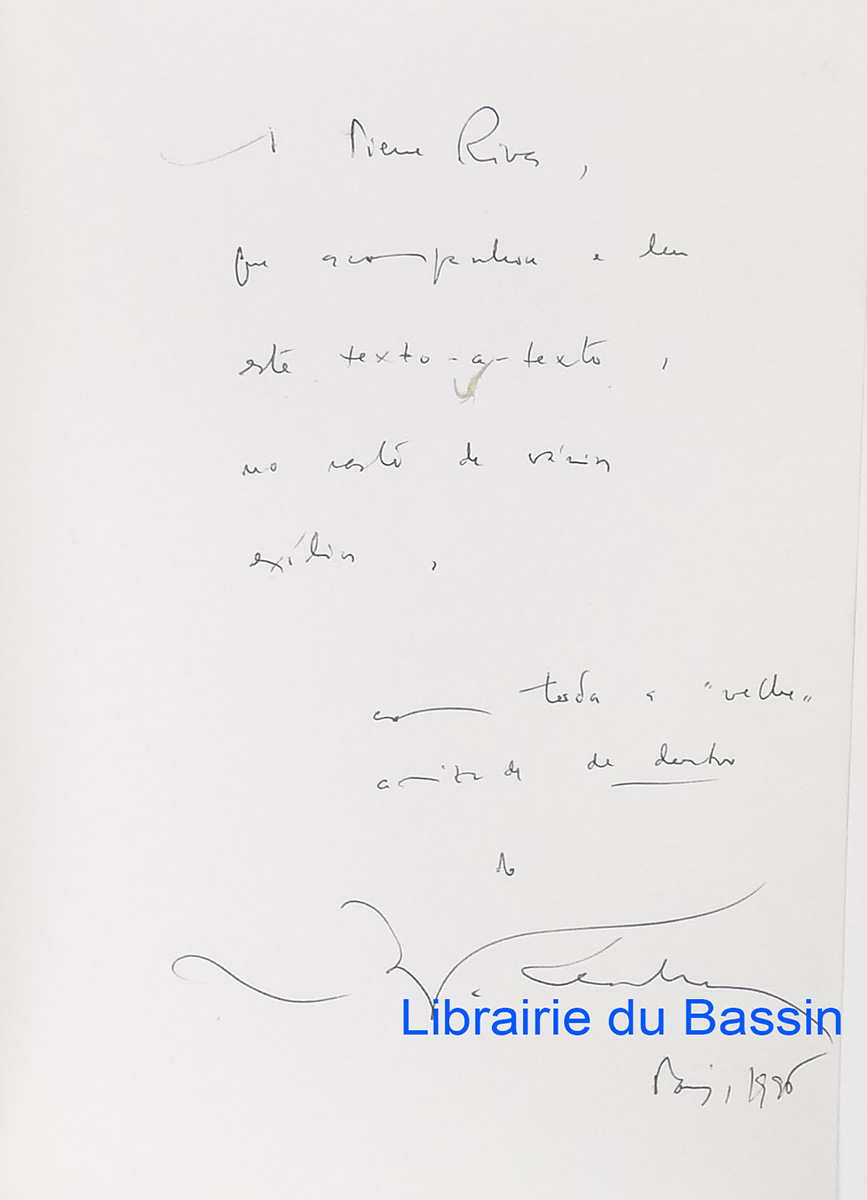 A Pierre Rivas,
que acompanhou e leu
este texto-a-texto,
no rasto de vários
exílios,
com toda a "velha"
amizade de dentro
do
Librairie du Bassin
Paris, 1996